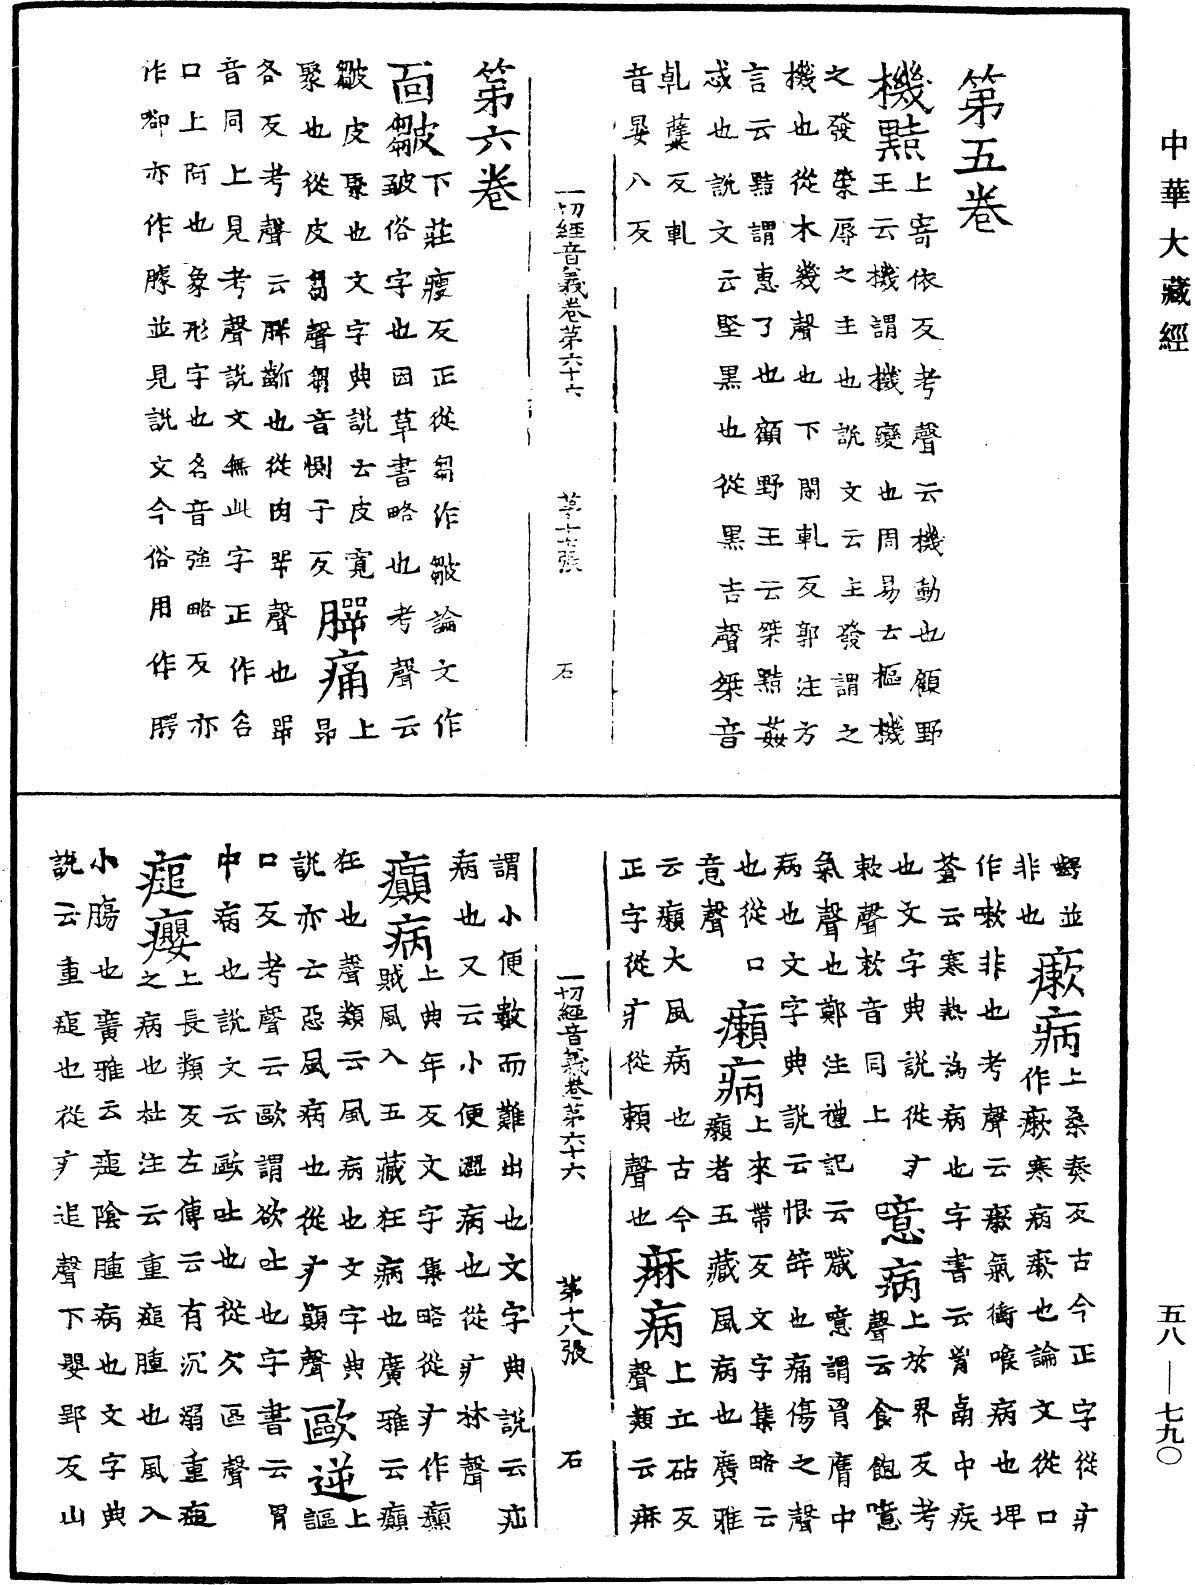 中華大藏經
第五卷
機黠上寄依反考聲云機動也顧野
王云機謂機變也周易云樞機
之發榮辱之主也說文云主發謂之
機也從木幾聲也下閑軋反郭注方
言云黠謂惠了也顧野王云桀黠姦
惑也說文云堅黑也從黑吉聲桀音
乹蘖反軋
音晏八反
一切經音義卷第六十六 第十七張 石
第六卷
面皺下莊瘦反正從芻作皺論文作
皺俗字也因草書略也考聲云
皺皮聚也文字典說云皮寬
聚也從皮芻聲芻音惻于反
膈痛上昂
各反考聲云腭齗也從肉咢聲也咢
音同上見考聲說文無此字正作𧮫
口上阿也象形字也名音強略反亦
作𧮫亦作臄並見說文今俗用作腭
齶並
非也
瘶病上桑奏反古今正字從疒
作瘶寒病瘶也論文從口
作嗽非也考聲云瘶氣衝喉病也埤
蒼云寒熱為病也字書云胷鬲中疾
也文字典說從疒
欶聲欶音同上
噫病上於界反考
聲云食飽噫
氣聲也鄭注禮記云噦噫謂胃膺中
病也文字典說云恨辞也痛傷之聲
也從口
意聲
癩病上來帶反文字集略云
癩者五藏風病也廣雅
云癩大風病也古今
正字從疒從賴聲也
痳病上立砧反
聲類云痳
一切經音義卷第六十六 第十八張 石
謂小便數而難出也文字典說云疝
病也又云小便澀病也從疒林聲
癲病上典年反文字集略從疒作癲
賊風入五藏狂病也廣雅云癲
狂也聲類云風病也文字典
說亦云惡風病也從疒顛聲
歐逆上謳
口反考聲云歐謂欲吐也字書云胃
中病也說文云歐吐也從欠區聲
㿉癭上長類反左傳云有沉溺重膇
之病也杜注云重膇腫也風入
小膓也廣雅云㿉陰腫病也文字典
說云重㿉也從疒追聲下嬰郢反山
五八—七九〇